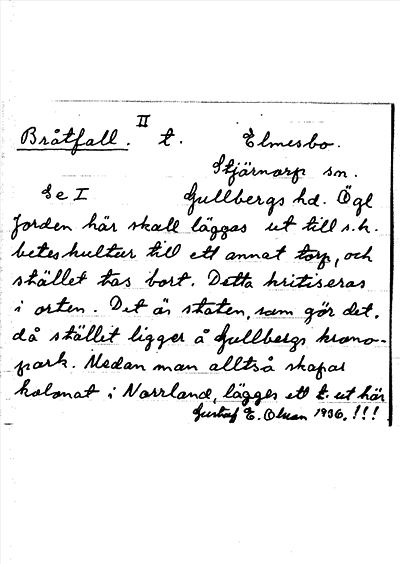 II
Bråtfall. t. Elmesbo.
Stjärnorp sn.
Se I Gullbergs hd. Ögl
Jorden här skall läggas ut till s.k.
beteskultur till ett annat torp, och
stället tas bort. Detta kritiseras
i orten. Det är staten, som gör det,
då stället ligger å Gullbergs krono-
park. Medan man alltså skapar
kolonat i Norrland, lägges ett t. ut här
Gustaf E. Olsson 1936. !!!